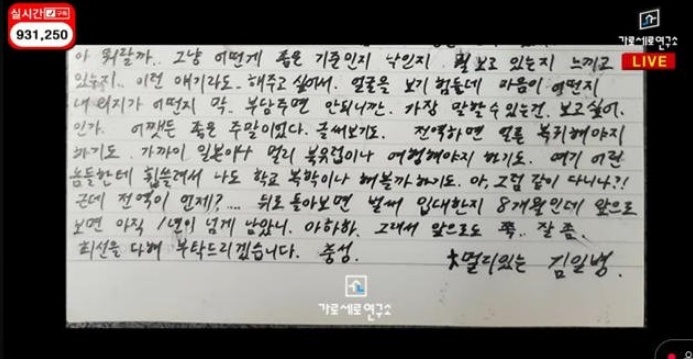 실시간 구독
931,250
가로세로연구소
LIVE
아 뭐랄까.. 그냥 어떻게 좁은 기준인지 낙인지. 뭘 보고 있는지 느끼고
있는지.. 이런 얘기라도. 해주고 싶어서. 얼굴을 보기 힘든데 마음이 어떤지
내 의지가 어떤지 막. 부담주면 안되니깐. 가장 말할 수 있는건. 보고싶어.
인가. 어쨌든 좋은 주말이었다. 글써보기도. 전역하면 얼른 복귀해야지
하기도. 가까이 일본이나 멀리 북유럽이나 여행해야지 하기도. 여기 어린
놈들한테 휩쓸려서 나도 학교 복학이나 해볼까하기도. 아, 그럼 같이 다니나?!
근데 전역이 언제?.... 뒤로 돌아보면 벌써 입대한지 8개월인데 앞으로
보면 아직 1년이 넘게 남았니. 아하하. 그래서 앞으로도 쭉.. 잘 좀.
최선을 다해 부탁드리겠습니다. 충성.
멀리있는 김일병.
가로세로연구소